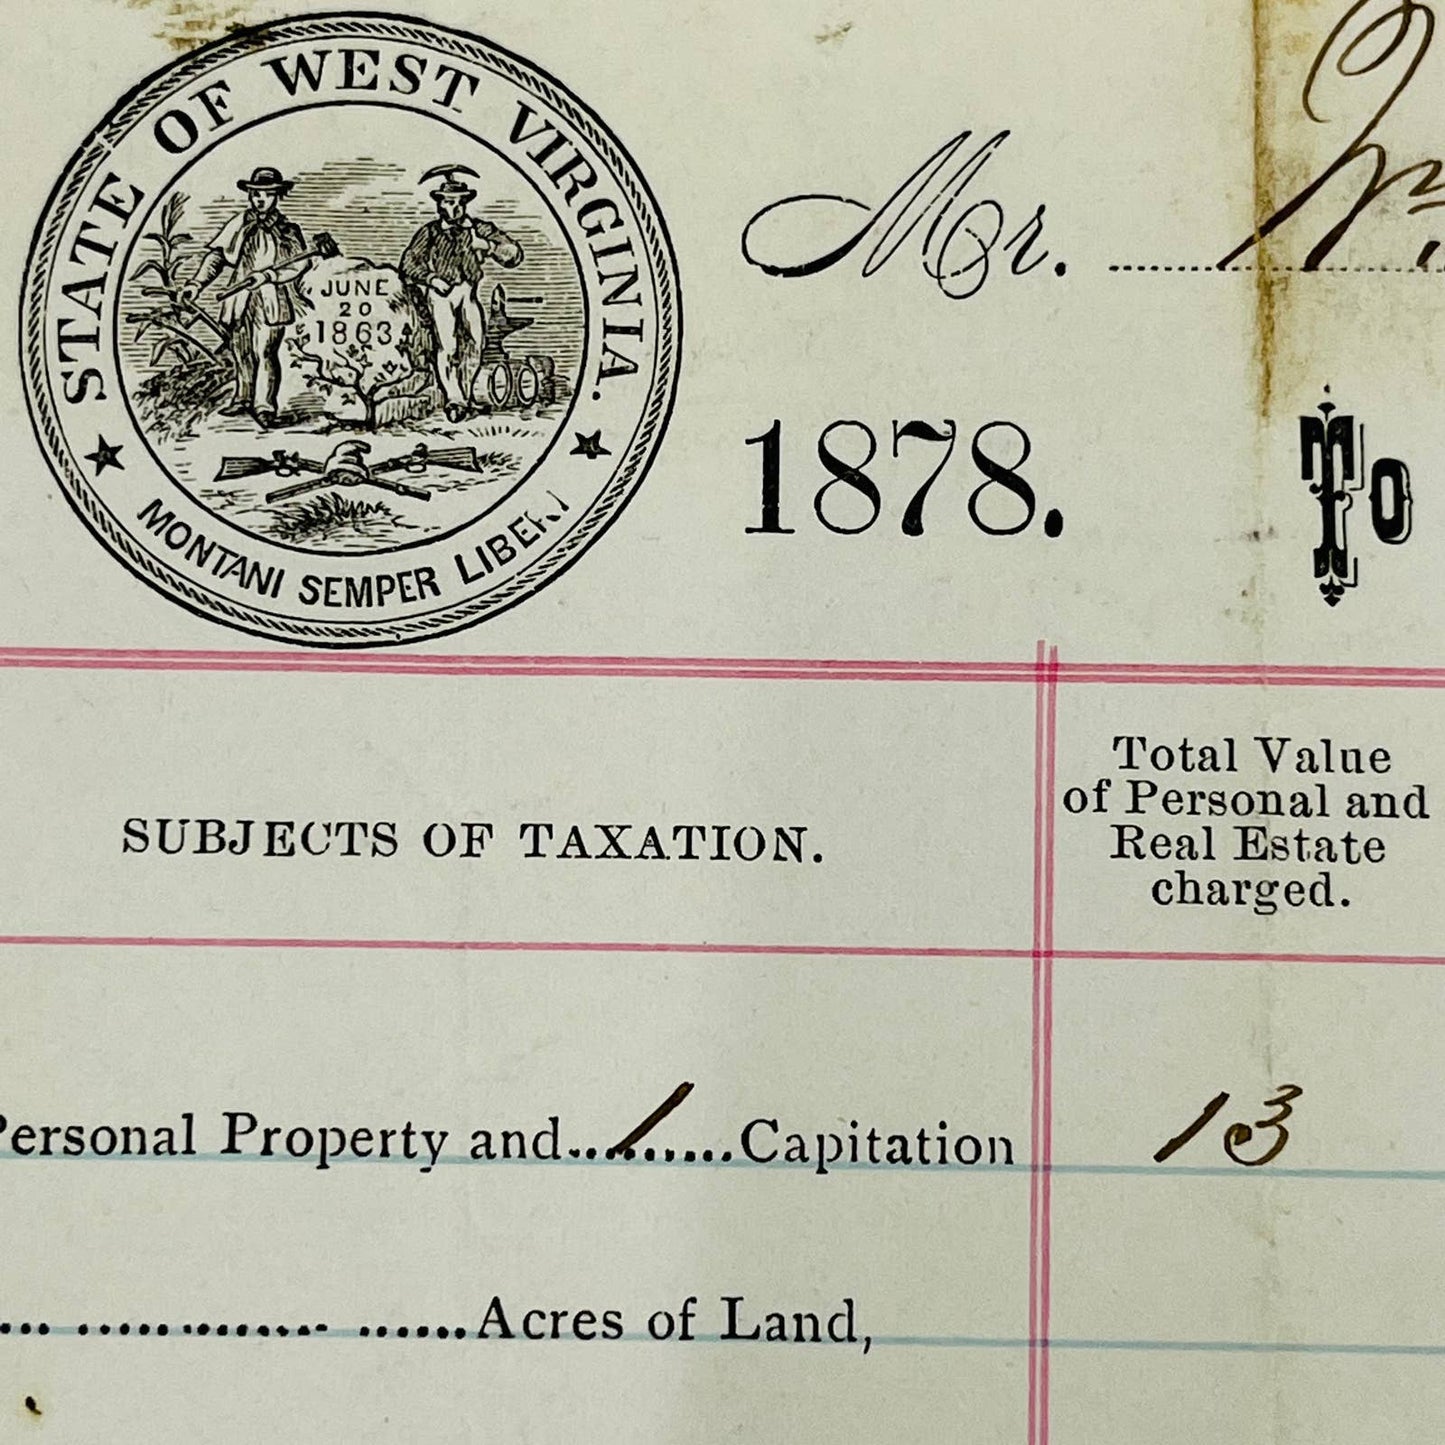 STATE OF WEST VIRGINIA.
JUNE
20
1863
MONTANI SEMPER
Mr.
1878.
To
SUBJECTS OF TAXATION.
Total Value
of Personal and
Real Estate
charged.
Personal Property and 1 Capitation
13
Acres of Land,